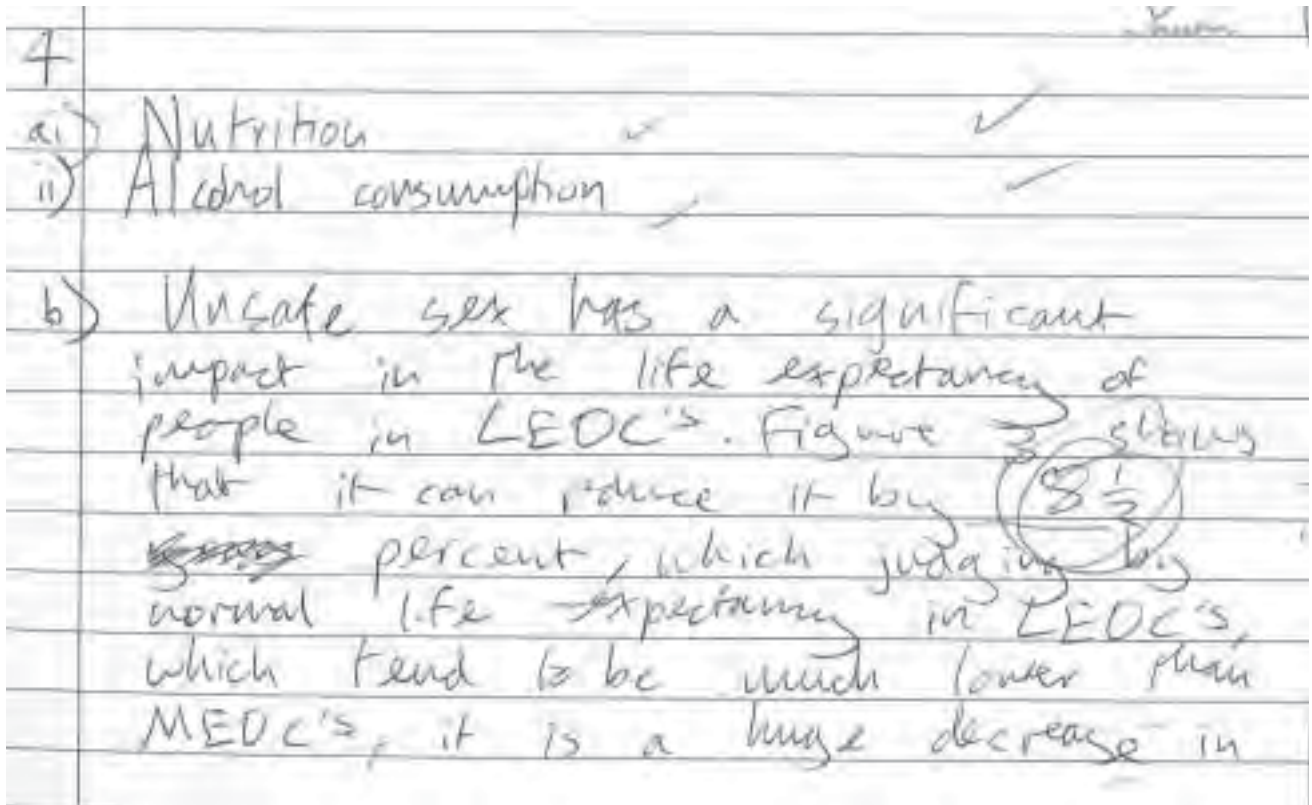 4
ai) Nutrition
ii) Alcohol consumption
b) Unsafe sex has a significant
impact in the life expectancy of
people in LEDC's. Figure 3 shows
that it can reduce it by 8 1/2
percent, which judging by
normal life expectancy in LEDC's,
which tend to be much lower than
MEDC's, it is a huge decrease in